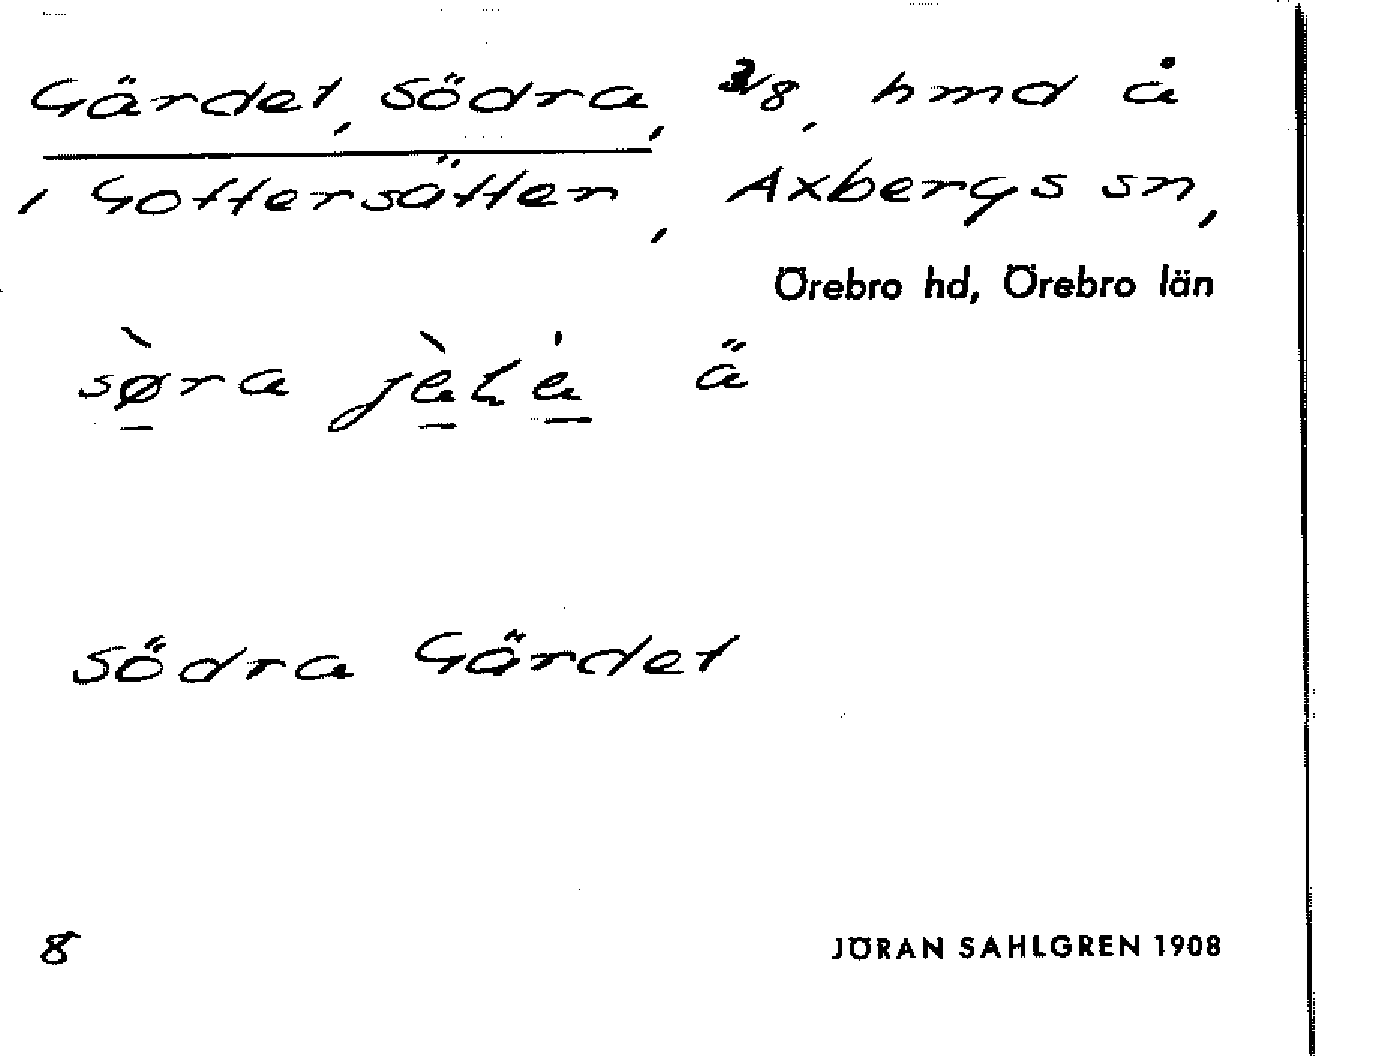 Gärdet, Södra, 3/8, hmd å
i Gottersätter, Axbergs sn,
Örebro hd, Örebro län
sø̀ra ä
Södra Gärdet
8
JÖRAN SAHLGREN 1908